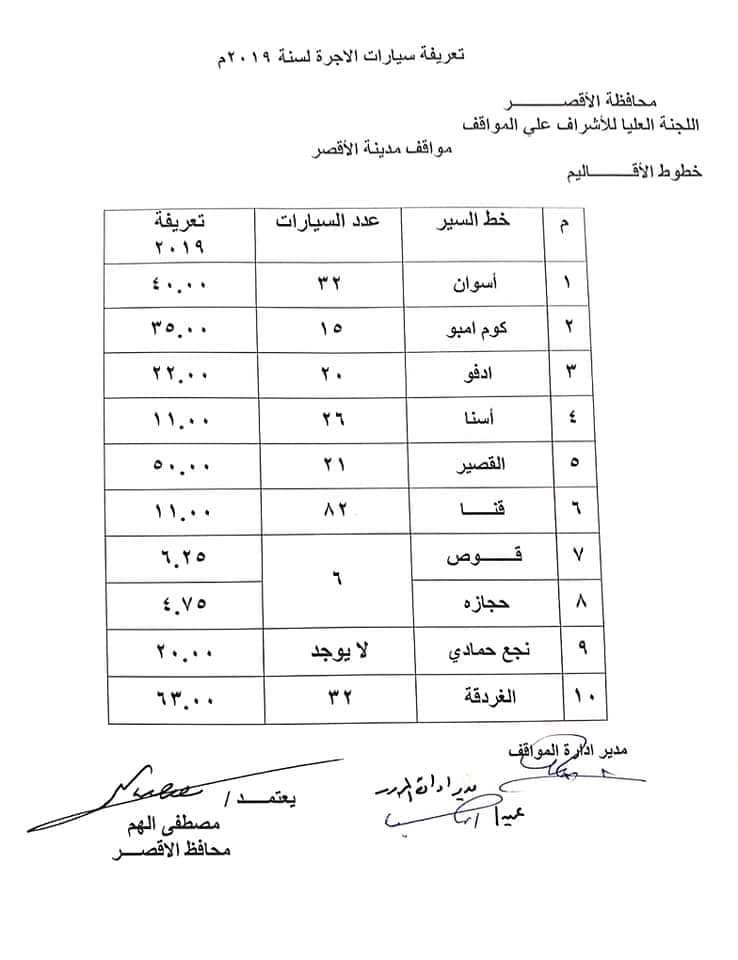 تعريفة سيارات الاجرة لسنة ٢٠١٩م
محافظة الأقصـــــــر
اللجنة العليا للأشراف علي المواقف
مواقف مدينة الأقصر
خطوط الأقــــــاليم
م خط السير عدد السيارات تعريفة ٢٠١٩
١ أسوان ٣٢ ٤٠.٠٠
٢ كوم امبو ١٥ ٣٥.٠٠
٣ ادفو ٢٠ ٢٢.٠٠
٤ أسنا ٢٦ ١١.٠٠
٥ القصير ٢١ ٥٠.٠٠
٦ قنــــا ٨٢ ١١.٠٠
٧ قـــــوص ٦ ٦.٢٥
٨ حجازه ٤.٧٥
٩ نجع حمادي لا يوجد ٢٠.٠٠
١٠ الغردقة ٣٢ ٦٣.٠٠
مدير ادارة المواقف
مدير ادارة المرور
عميد/
يعتمـــد/
مصطفى الهم
محافظ الاقصـــر